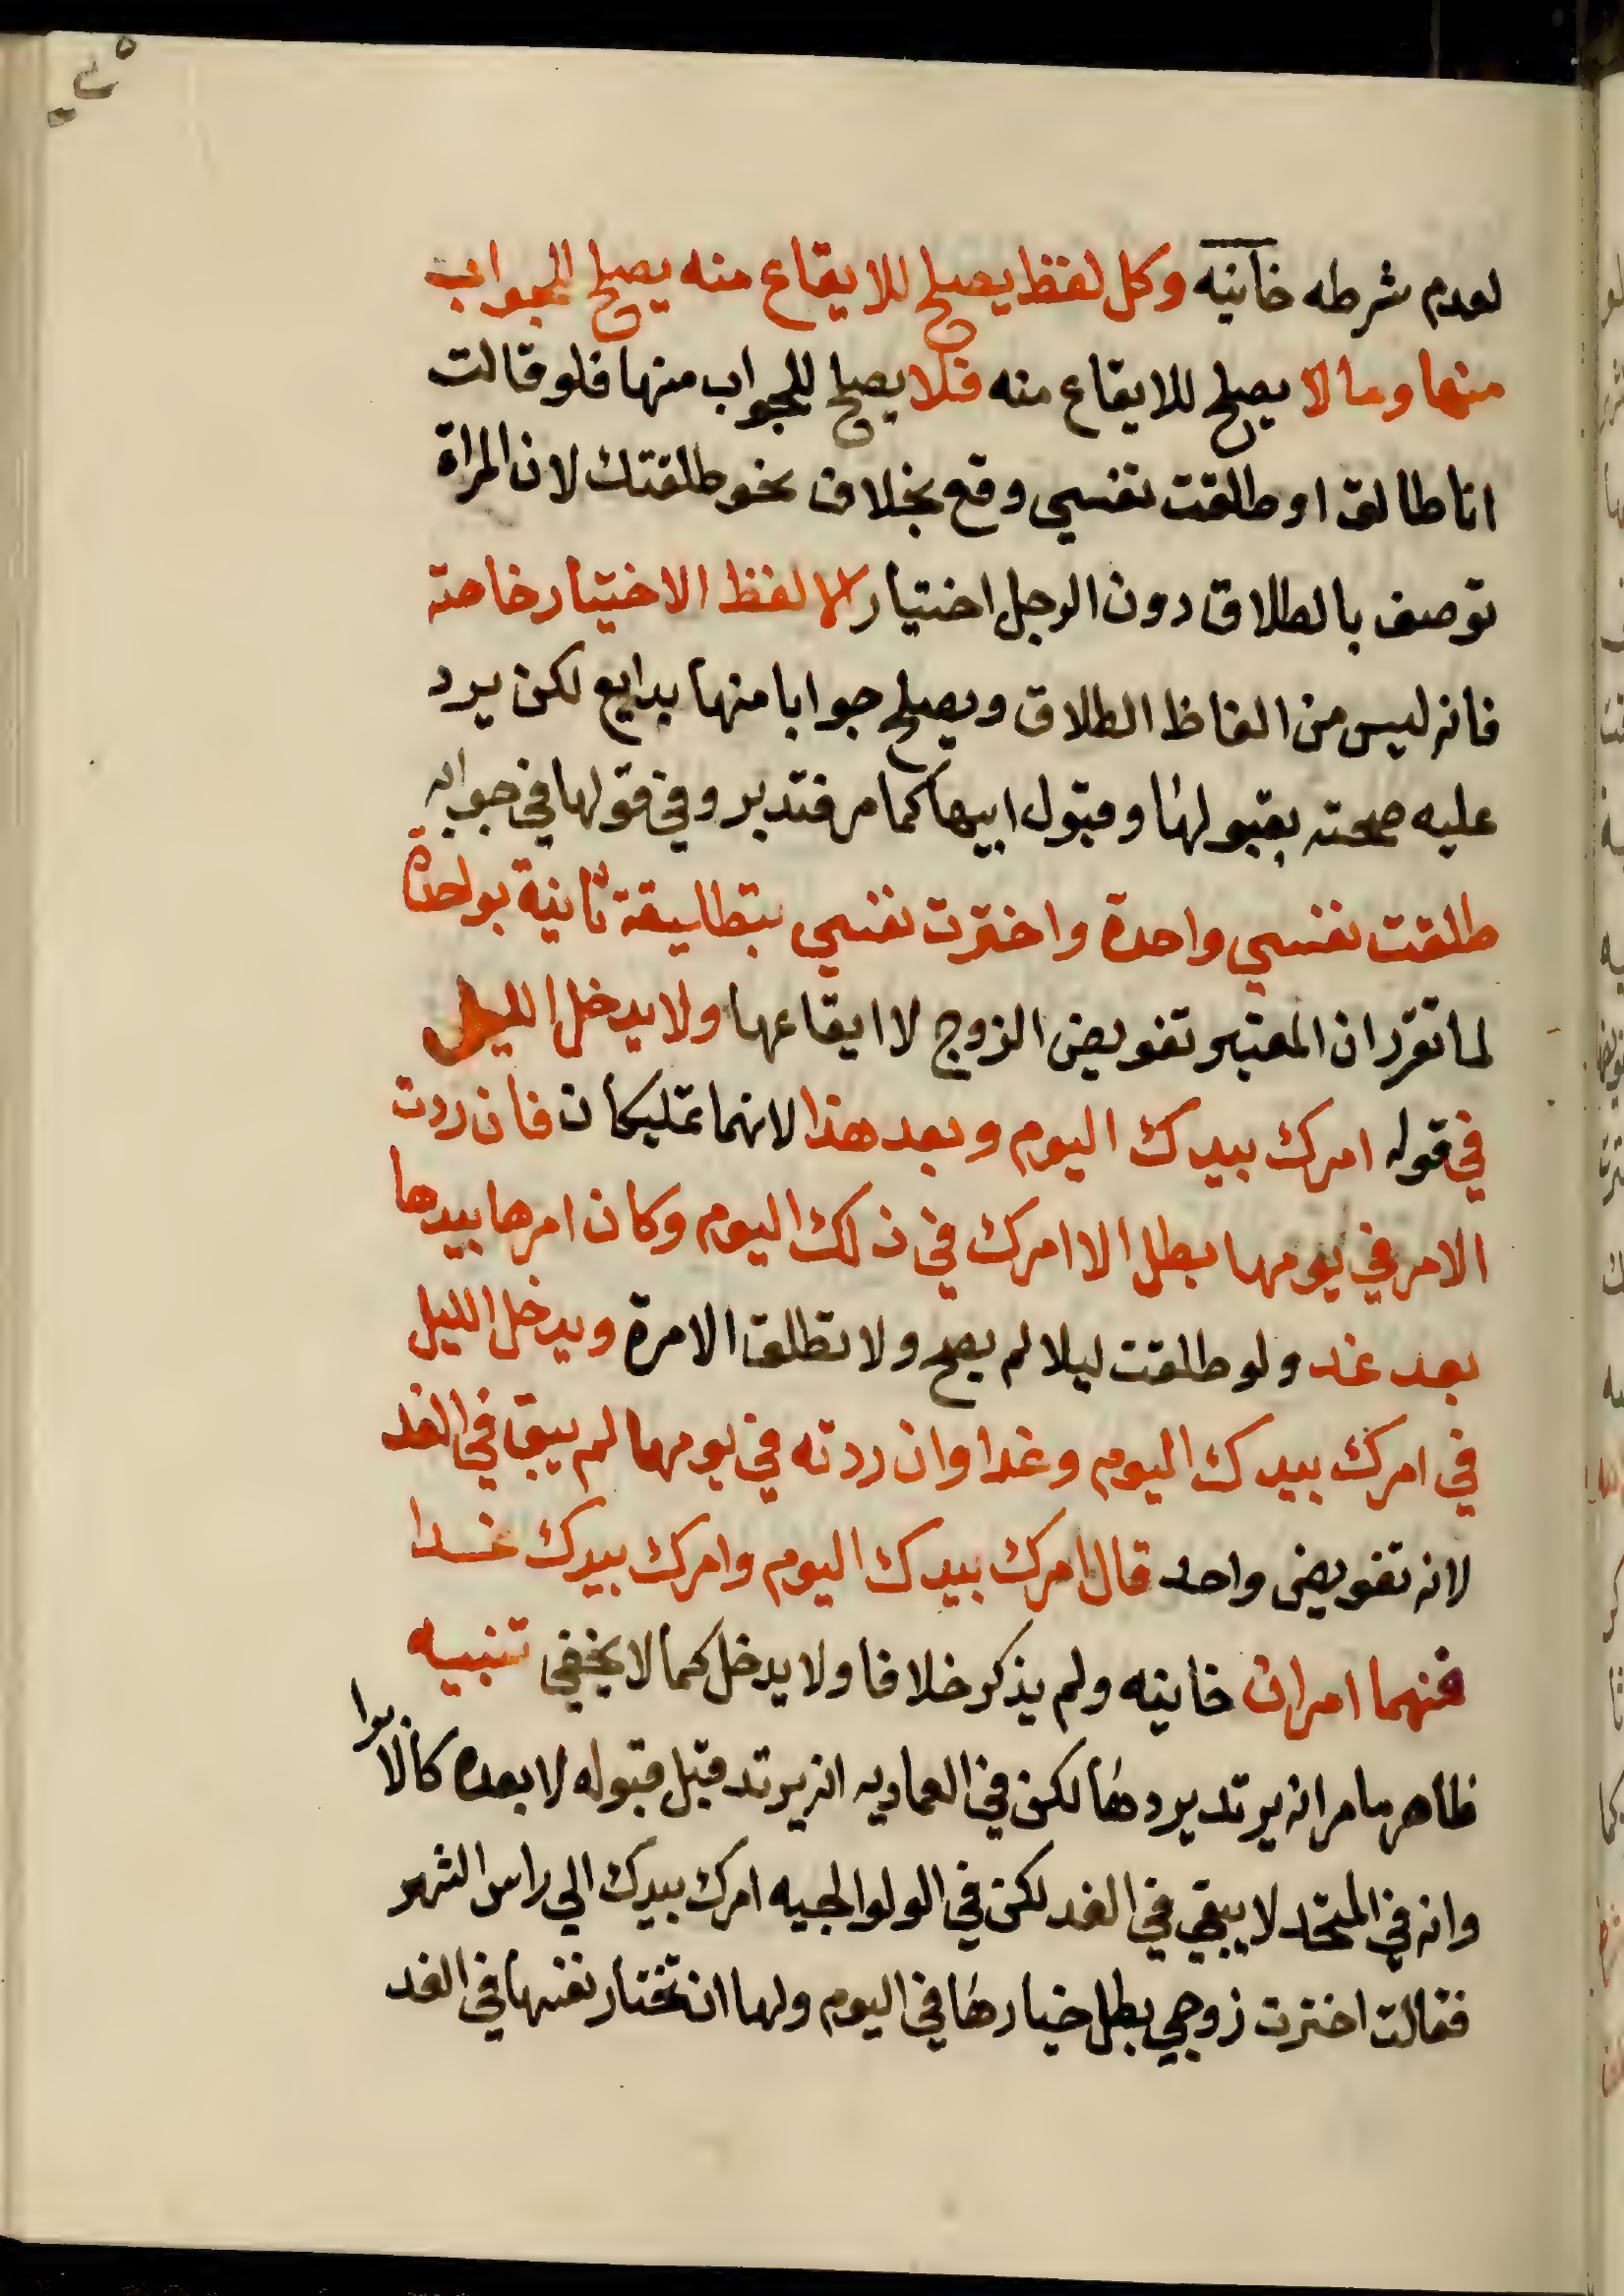 لعدم شرطه خانيه وكل لفظ يصلح للايقاع منه يصلح للجواب
منها وما لا يصلح للايقاع منه فلا يصلح للجواب منها فلو قالت
انا طالق او طلقت نفسي وقع بخلاف نحو طلقتك لان المراة
توصف بالطلاق دون الرجل اختيار الا لفظ الاختيار خاصة
فانه ليس من الفاظ الطلاق ويصلح جوابا منها بدايع لكن يرد
عليه صحته بقبولها وقبول ابيها كما مر فتدبر وفي قولها في جوابه
طلقت نفسي واحدة واخترت نفسي بتطليقة ثانية بواحدة
لما تقرر ان المعتبر تفويض الزوج لا ايقاعها ولا يدخل الليل
في قوله امرك بيدك اليوم وبعد هذا لانهما تمليكان فان ردت
الامر في يومها بطل الا امرك في ذلك اليوم وكان امرها بيدها
بعد غد ولو طلقت ليلا لم يصح ولا تطلق الا مرة ويدخل الليل
في امرك بيدك اليوم وغدا وان ردته في يومها لم يبق في الغد
لانه تفويض واحد قال امرك بيدك اليوم وامرك بيدك غدا
فنهما امران خانيه ولم يذكر خلافا ولا يدخل كما لا يخفي تنبيه
ظاهر ما مر انه يرتد بردها لكن في العماديه انه يرتد قبل قبوله لا بعده كالابرا
وانه في المتحد لا يبقي في الغد لكن في الولوالجيه امرك بيدك الي راس الشهر
فقالت اخترت زوجي بطل خيارها في اليوم ولها ان تختار نفسها في الغد